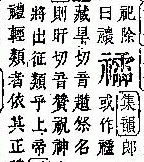 祀除集韻郎
曰禳或作
藏旱切音趲祭名
則旰切音贊祝神
將出征類乎上帝
禮輕類者依其正